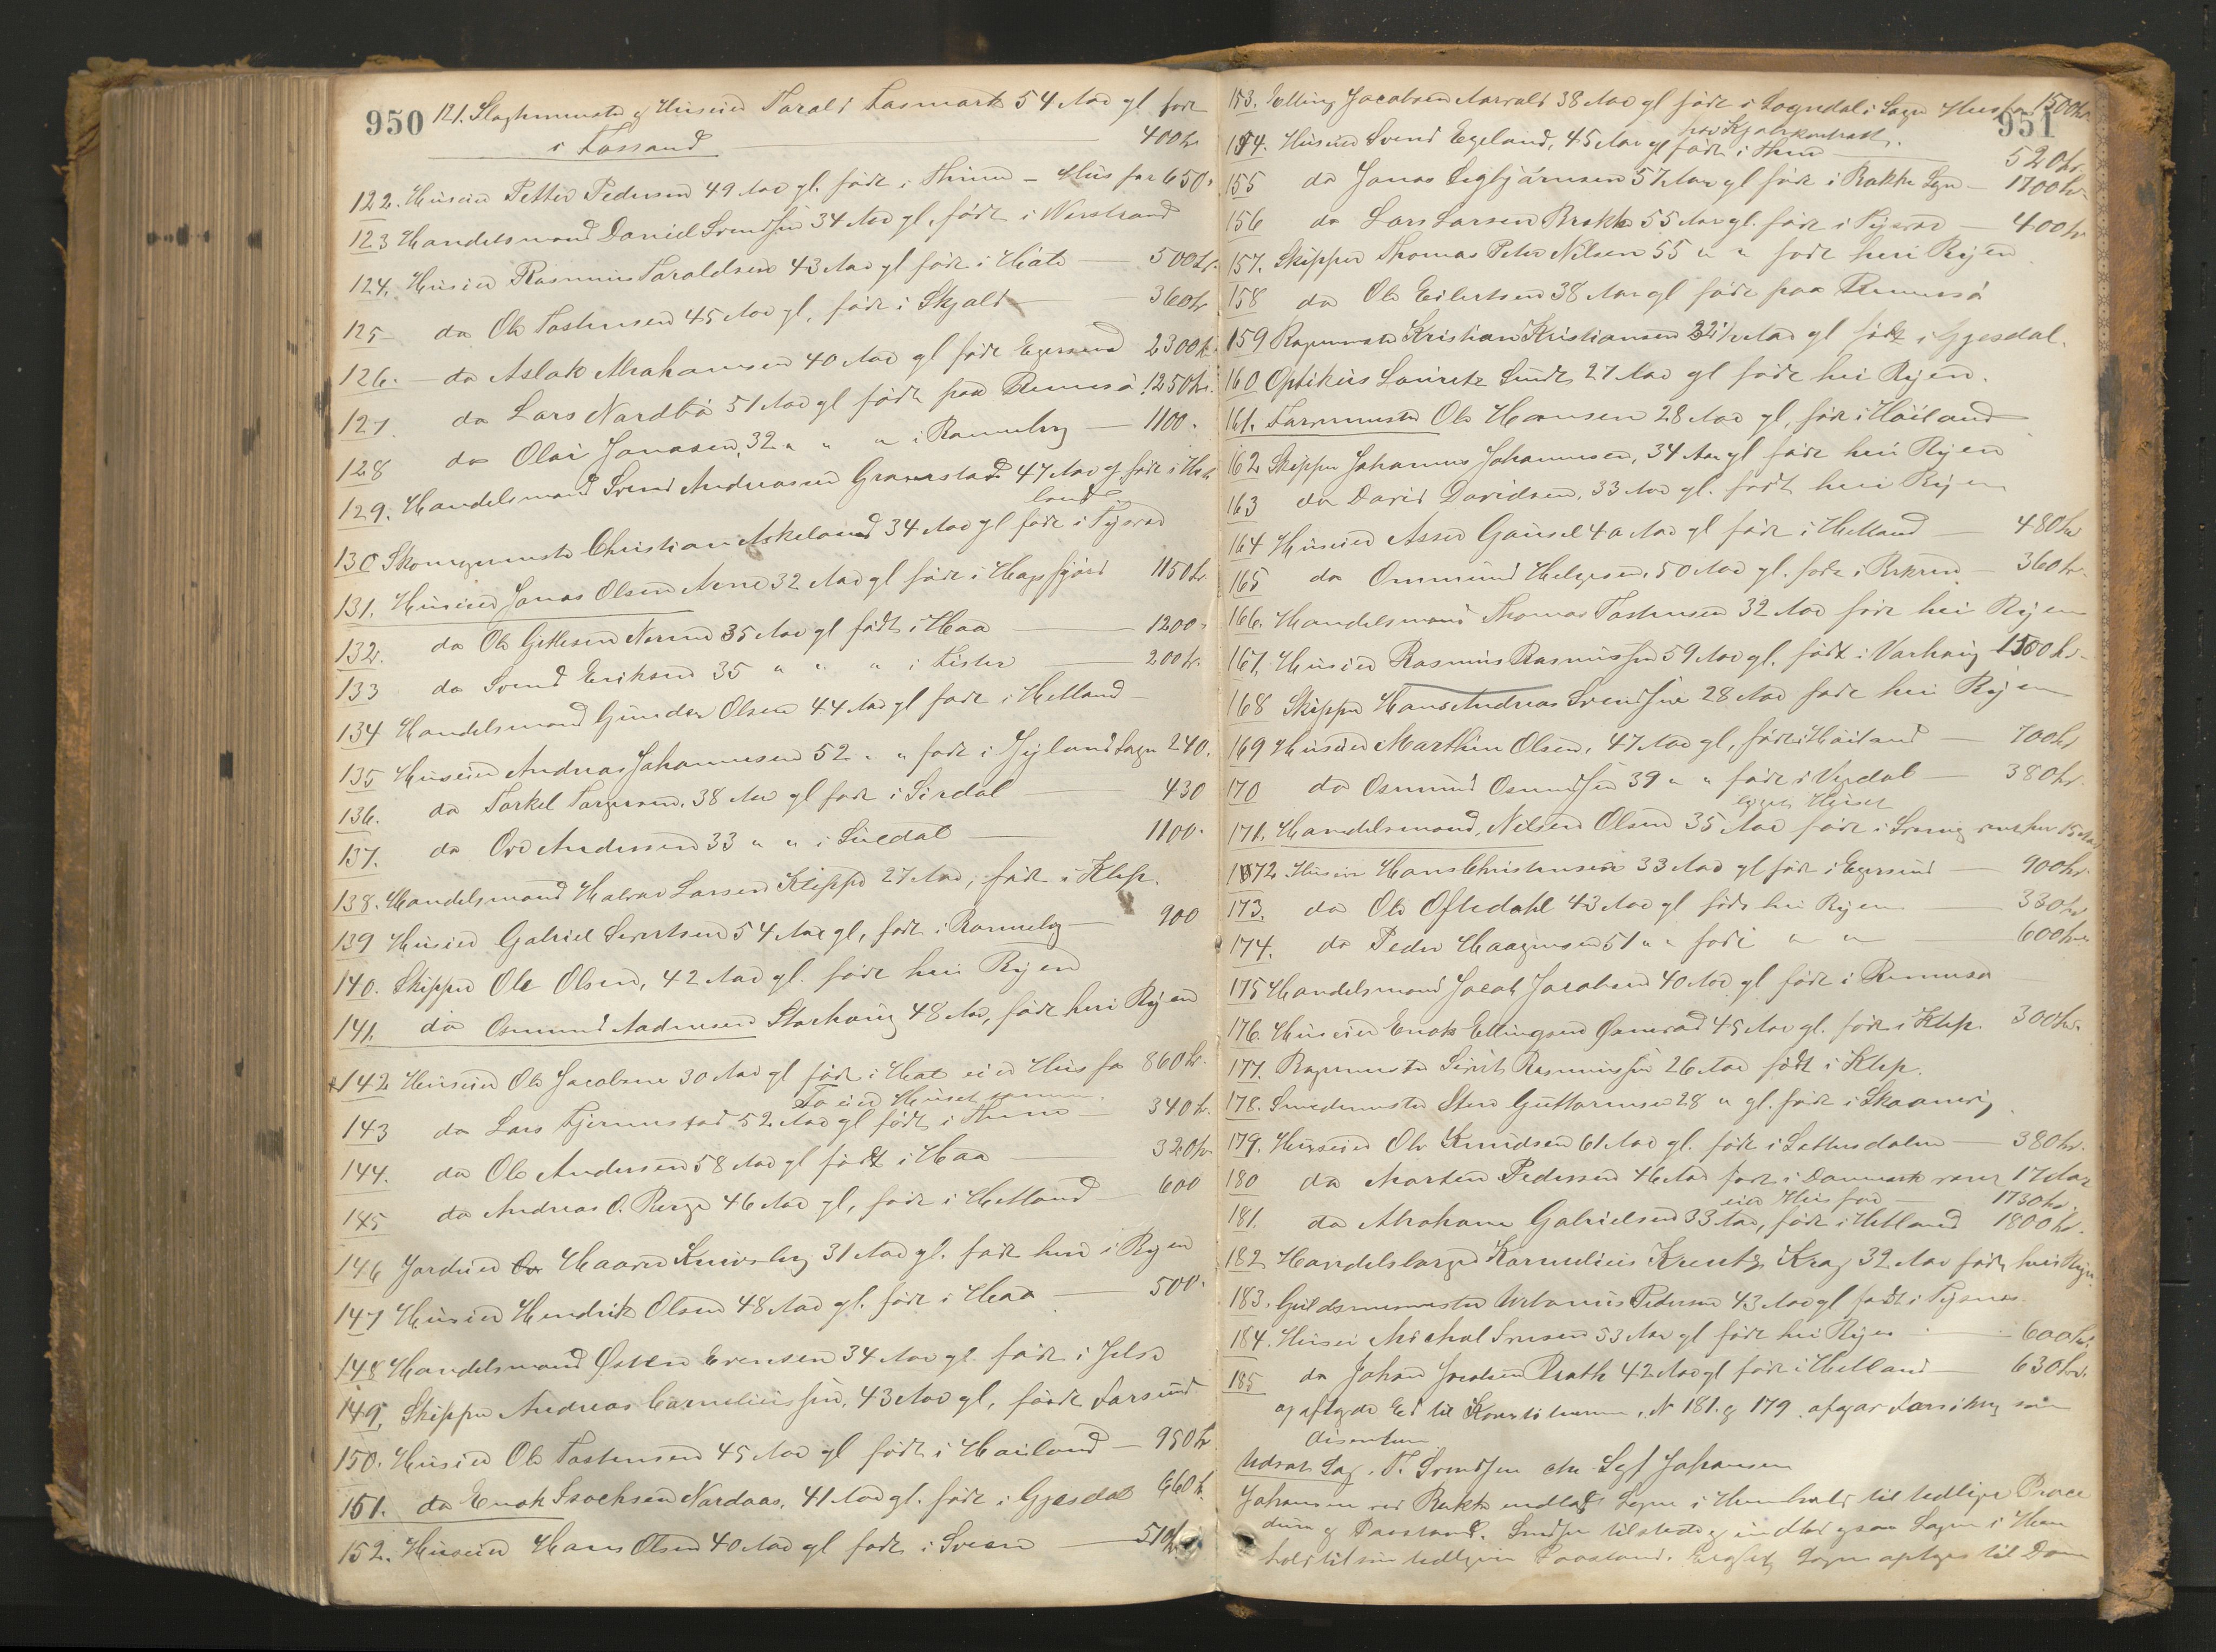 950
121. Slagtermester og Huseier Tarald Lasmark 54 Aar gl født
i Fossand 400 kr
122. Huseier Petter Pedersen 49 Aar gl. født i Thime - Hus for 650.
123 Handelsmand Daniel Svendsen 34 Aar gl, født i Nerstrand
124. Huseier Rasmus Taraldsen 43 Aar gl født i Haa 500 kr.
125 do Ole Tostensen 45 Aar gl, født i Skjold 360 kr
126. do Aslak Abrahamsen 40 Aar gl født Egersund 2300 k.
127. do Lars Nordbø 51 Aar gl født paa Rennesø 1250 kr.
128 do Olai Jonasen, 32 " " " i Rønneberg 1100.
129. Handelsmand Svend Andreassen Gravarstad 47 Aar gl født i Het
land
130 Skomagermester Christian Askeland 34 Aar gl født i Fisterø
131. Huseier Jonas Olsen Aune 32 Aar gl født i Hapsfjord 1150 kr
132. do Ole Gitlesen Nerem 35 Aar gl født i Haa 1200.
133 do Svend Eriksen 35 " " " i Lister 200 kr.
134 Handelsmand Gunder Olsen 44 Aar gl født i Hetland
135 Huseier Andreas Johannesen 52 " " født i Jylland Sogn 240.
136. do Torkel Torgersen, 38 Aar gl født i Sirdal 430
137. do Ove Andersen 33 " " i Suledal 1100.
138. Handelsmand Halvor Larsen Kleppe 27 Aar, født i Klep.
139 Huseier Gabriel Sivertsen 54 Aar gl, født i Rønneberg 900
140. Skipper Ole Olsen, 42 Aar gl. født her i Byen
141. do Osmund Aadnesen Storhaug 48 Aar, født her i Byen
142 Huseier Ole Jacobsen 30 Aar gl født i Haa eier Hus for 860 kr.
To eier Huset sammen.
143 do Lars Tjemsstad 52 Aar gl født i Thime 340 k.
144. do Ole Andersen 58 Aar gl født i Haa 320 kr
145 do Andreas O. Berge 46 Aar gl, født i Hetland 600
146 Jordeier Haaver Knivsberg 31 Aar gl. født her i Byen
147 Huseier Hendrik Olsen 48 Aar gl. født i Haa 500.
148 Handelsmand Østen Evensen 34 Aar gl. født i Jelse
149. Skipper Andreas Corneliussen, 43 Aar gl, født Farsund
150. Huseier Ole Tostensen 45 Aar gl født i Høiland 950 kr
151. do Enok Isachsen Nordaas, 41 Aar gl. født i Gjesdal 660 k.
152. Huseier Hans Olsen 40 Aar gl født i Sveen 510 k
951
153. Elling Jacobsen Aarvold 38 Aar gl født i Sogndal i Sogn Hus for 1500 kr
har Kjøbekontrakt.
154. Huseier Svend Egeland, 45 Aar gl født i Thime 520 kr
155 do Jonas Sigbjørnsen 57 Aar gl født i Bakke Sogn 1700 kr
156 do Lars Larsen Brekke 55 Aar gl. født i Fisterø 400 kr
157. Skipper Thomas Peter Nilsen 55 " " født her i Byen
158 do Ole Eilertsen 38 Aar gl født paa Rennesø
159 Bagermester Kristian Kristiansen 32 1/2 Aar gl født i Gjesdal.
160 Optikus Lauritz Sundt 27 Aar gl født her i Byen.
161. Farvermester Ole Hansen 28 Aar gl, født i Høiland
162 Skipper Johannes Johannesen, 34 Aar gl født her i Byen
163 do David Davidsen, 33 Aar gl. født her i Byen
164 Huseier Asser Gausel 40 Aar gl født i Hetland 480 kr
165 do Ommund Helgesen, 50 Aar gl. født i Birkrem 360 kr
166. Handelsmand Thomas Tostensen 32 Aar født her i Byen
167, Huseier Rasmus Rasmussen 59 Aar gl. født i Varhaug 1500 kr.
168 Skipper Hans Andreas Svendsen 28 Aar født her i Byen
169 Huseier Marthin Olsen, 47 Aar gl, født i Høiland 700 kr
170 do Osmund Osmundsen 39 " " født i Vigdal 380 kr.
171. Handelsmand, Nilsen Olsen 35 Aar født i
172 Huseier Hans Christensen 33 Aar gl født i Egersund 900 kr.
173. do Ole Oftedahl 43 Aar gl født her i Byen 330 kr
174. do Peder Haagensen 51 " " født " " 600 kr
175 Handelsmand Jacob Jacobsen 40 Aar gl født i Rennesø
176. Huseier Enok Ellingsen Omerød 45 Aar gl. født i Klep. 300 kr.
177. Bagermester Sivert Rasmussen 26 Aar født i Klep.
178. Smedemester Sten Guttormsen 28 " gl. født i Skaanevig
179. Huseier Ole Knudsen 61 Aar gl. født i Sættersdalen 380 kr.
180 do Morten Pedersen 46 Aar født i Danmark været 17 Aar
eier Hus for 1730 kr.
181. do Abraham Gabrielsen 33 Aar, født i Hetland 1800 kr.
182 Handelsborger Kornelius Kreutz Krag 32 Aar født her i Byen
183. Guldsmedmester Urbanus Pedersen 43 Aar gl født i Tysnes
184. Huseier Michal Iversen 53 Aar gl født her i Byen 600 kr.
185 do Johan Jacobsen Bråth 42 Aar gl født i Hetland 630 kr.
og aflagde Ed til Konstitutionen, N 181. og 179 afgav Forsikring som
dissenter
Udsat Sag. T. Svendsen ctr. Sgf Johansen
Johansen ved Bakke indlod Sagen i Henhold til tidligere Proce
dure og Paastand. Svendsen tilstede og indlod ogsaa Sagen i Hen
hold til sin tidligere Paastand. Eragtet Sagen optages til Dom